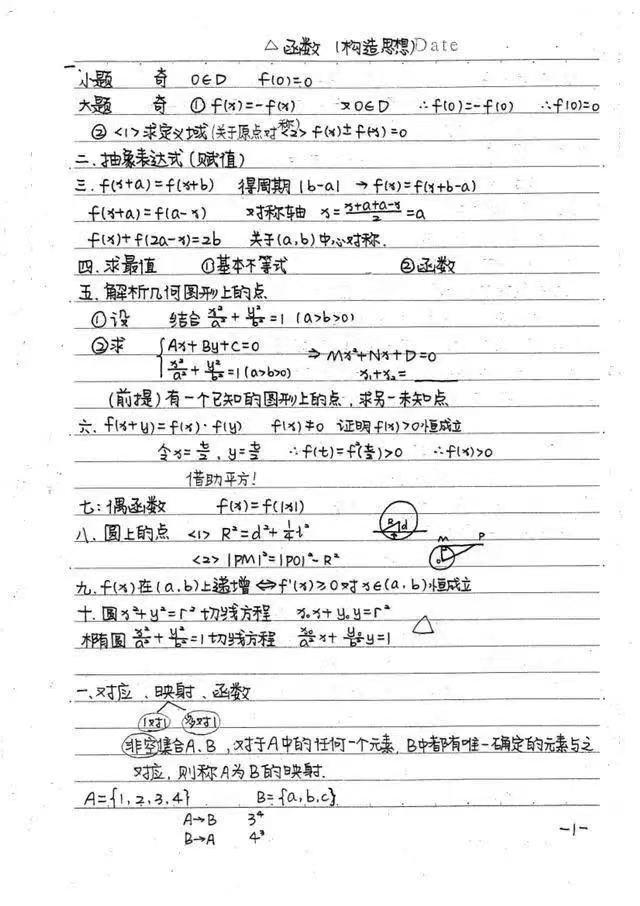 △ 函数 (构造思想) Date
一 小题 奇 0∈D f(0)=0
大题 奇 ① f(x)=-f(x) 又0∈D ∴f(0)=-f(0) ∴f(0)=0
② <1>求定义域(关于原点对称) <2> f(x)±f(-x)=0
二. 抽象表达式(赋值)
三. f(x+a)=f(x+b) 得周期|b-a| → f(x)=f(x+b-a)
f(x+a)=f(a-x) 对称轴 x=(x+a+a-x)/2=a
f(x)+f(2a-x)=2b 关于(a,b)中心对称.
四. 求最值 ①基本不等式 ②函数
五. 解析几何图形上的点
①设 结合 x²/a²+y²/b²=1 (a>b>0)
②求 { Ax+By+C=0
x²/a²+y²/b²=1(a>b>0) ⇒ Mx²+Nx+D=0
x₁+x₂=____
(前提)有一个已知的图形上的点,求另一未知点
六. f(x+y)=f(x)·f(y) f(x)≠0 证明f(x)>0恒成立
令x=t/2, y=t/2 ∴f(t)=f²(t/2)>0 ∴f(x)>0
借助平方!
七: 偶函数 f(x)=f(|x|)
八. 圆上的点 <1> R²=d²+¼l² R d
<2> |PM|²=|PO|²-R² M P O
九. f(x)在(a,b)上递增⇔f'(x)≥0对x∈(a,b)恒成立
十. 圆x²+y²=r²切线方程 x₀x+y₀y=r²
椭圆 x²/a²+y²/b²=1切线方程 x₀/a² x+y₀/b² y=1 △
一. 对应、映射、函数
1对1 多对1
非空集合A、B,对于A中的任何一个元素,B中都有唯一确定的元素与之
对应,则称A为B的映射.
A={1,2,3,4} B={a,b,c}
A→B 3⁴
B→A 4³
-1-